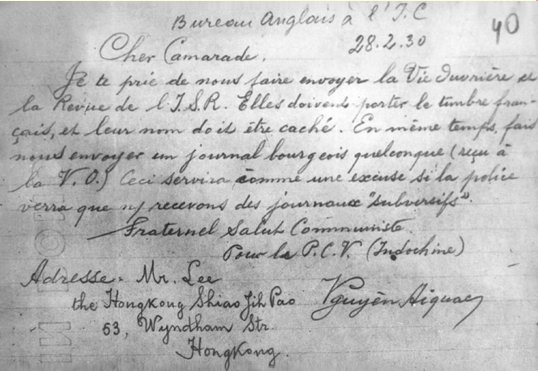 Bureau Anglais à l'I.C
40
28.2.30
Cher Camarade,
Je te prie de nous faire envoyer la Vie Ouvrière et
la Revue de l'I.S.R. Elles doivent porter le timbre fran-
çais, et leur nom doit être caché. En même temps, fais
nous envoyer un journal bourgeois quelconque (reçu à
la V.O.) Ceci servira comme une excuse si la police
verra que ns recevons des journaux "subversifs".
Fraternel Salut Communiste.
Pour le P.C.V. (Indochine)
Adresse. Mr. Lee
the HongKong Shiao Jih Pao
53, Wyndham Str.
HongKong.
Nguyên Aiquac